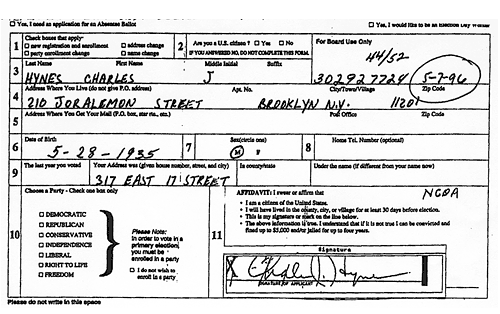 ☐ Yes, I need an application for an Absentee Ballot ☐ Yes, I would like to be an Election Day Worker
1 Check boxes that apply:
☐ new registration and enrollment ☐ address change
☐ party enrollment change ☐ name change
2 Are you a U.S. citizen? ☐ Yes ☐ No
IF YOU ANSWERED NO, DO NOT COMPLETE THIS FORM.
For Board Use Only
44/52
3 Last Name First Name Middle Initial Suffix
HYNES CHARLES J
302927724 5-7-96
4 Address Where You Live (do not give P.O. address) Apt. No. City/Town/Village Zip Code
210 JORALEMON STREET BROOKLYN N.Y. 11201
5 Address Where You Get Your Mail (P.O. box, star rte., etc.) Post Office Zip Code
6 Date of Birth
5-28-1935
7 Sex(circle one)
M F
8 Home Tel. Number (optional)
9 The last year you voted Your Address was (given house number, street, and city) In county/state Under the name (if different from your name now)
317 EAST 17 STREET
10 Choose a Party - Check one box only
☐ DEMOCRATIC
☐ REPUBLICAN
☐ CONSERVATIVE
☐ INDEPENDENCE
☐ LIBERAL
☐ RIGHT TO LIFE
☐ FREEDOM
Please Note:
In order to vote in a
primary election,
you must be
enrolled in a party
☐ I do not wish to
enroll in a party
11 AFFIDAVIT: I swear or affirm that
NGDA
• I am a citizen of the United States.
• I will have lived in the county, city, or village for at least 30 days before election.
• This is my signature or mark on the line below.
• The above information is true. I understand that if it is not true I can be convicted and
fined up to $5,000 and/or jailed for up to four years.
Signature
X
SIGNATURE OF APPLICANT
Please do not write in this space